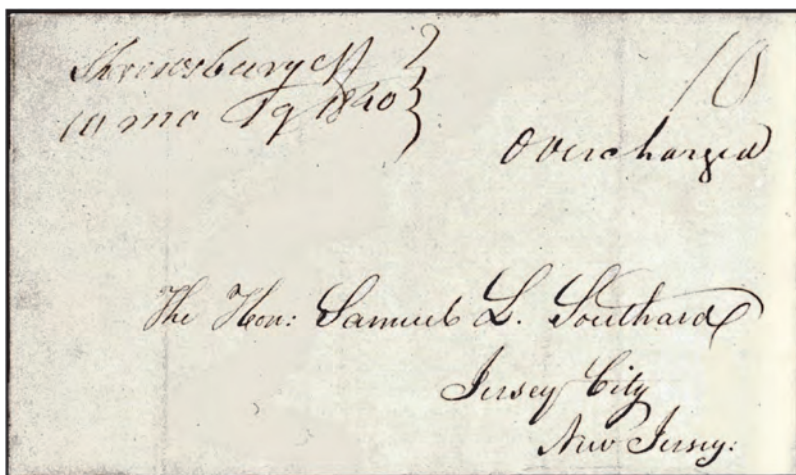 Shrewsbury NJ
10 mo 19 1840
10
Overcharged
The Hon: Samuel L. Southard
Jersey City
New Jersey: